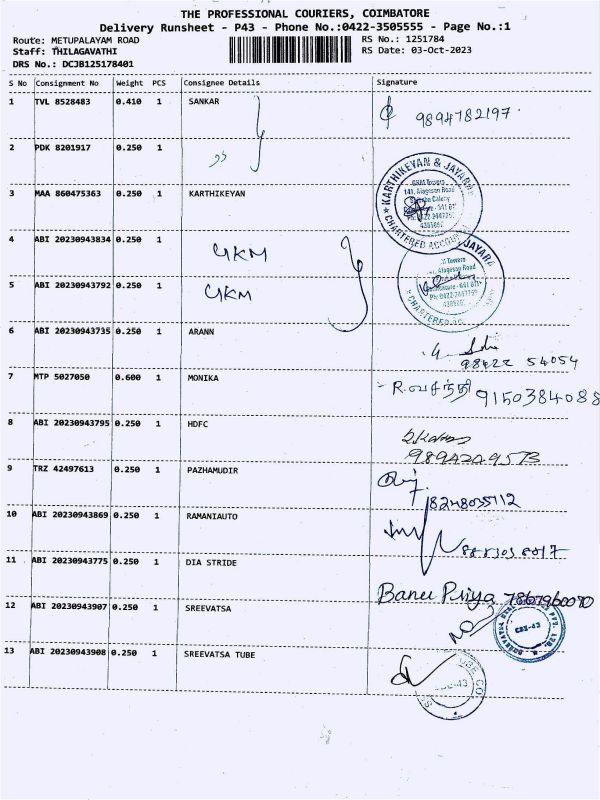 THE PROFESSIONAL COURIERS, COIMBATORE
Delivery Runsheet - P43 - Phone No.:0422-3505555 - Page No.:1
Route: METUPALAYAM ROAD
RS No.: 1251784
Staff: THILAGAVATHI
RS Date: 03-Oct-2023
DRS No.: DCJB125178401
S No Consignment No Weight PCS Consignee Details Signature
1 TVL 8528483 0.410 1 SANKAR 9894782197
2 PDK 8201917 0.250 1
3 MAA 860475363 0.250 1 KARTHIKEYAN
KARTHIKEYAN & JAYARA
GKM Towers
141, Alagesan Road
CHARTERED ACCOU
4 ABI 20230943834 0.250 1 GKM
JAYARA
Towers
Alagesan Road
5 ABI 20230943792 0.250 1 GKM
CHARTERED AC
6 ABI 20230943735 0.250 1 ARANN
98422 54054
7 MTP 5027050 0.600 1 MONIKA R.வசந்தி 9150384088
8 ABI 20230943795 0.250 1 HDFC
9 TRZ 42497613 0.250 1 PAZHAMUDIR
10 ABI 20230943869 0.250 1 RAMANIAUTO
11 ABI 20230943775 0.250 1 DIA STRIDE
Banu Priya 7867960070
12 ABI 20230943907 0.250 1 SREEVATSA
CBE-43
13 ABI 20230943908 0.250 1 SREEVATSA TUBE